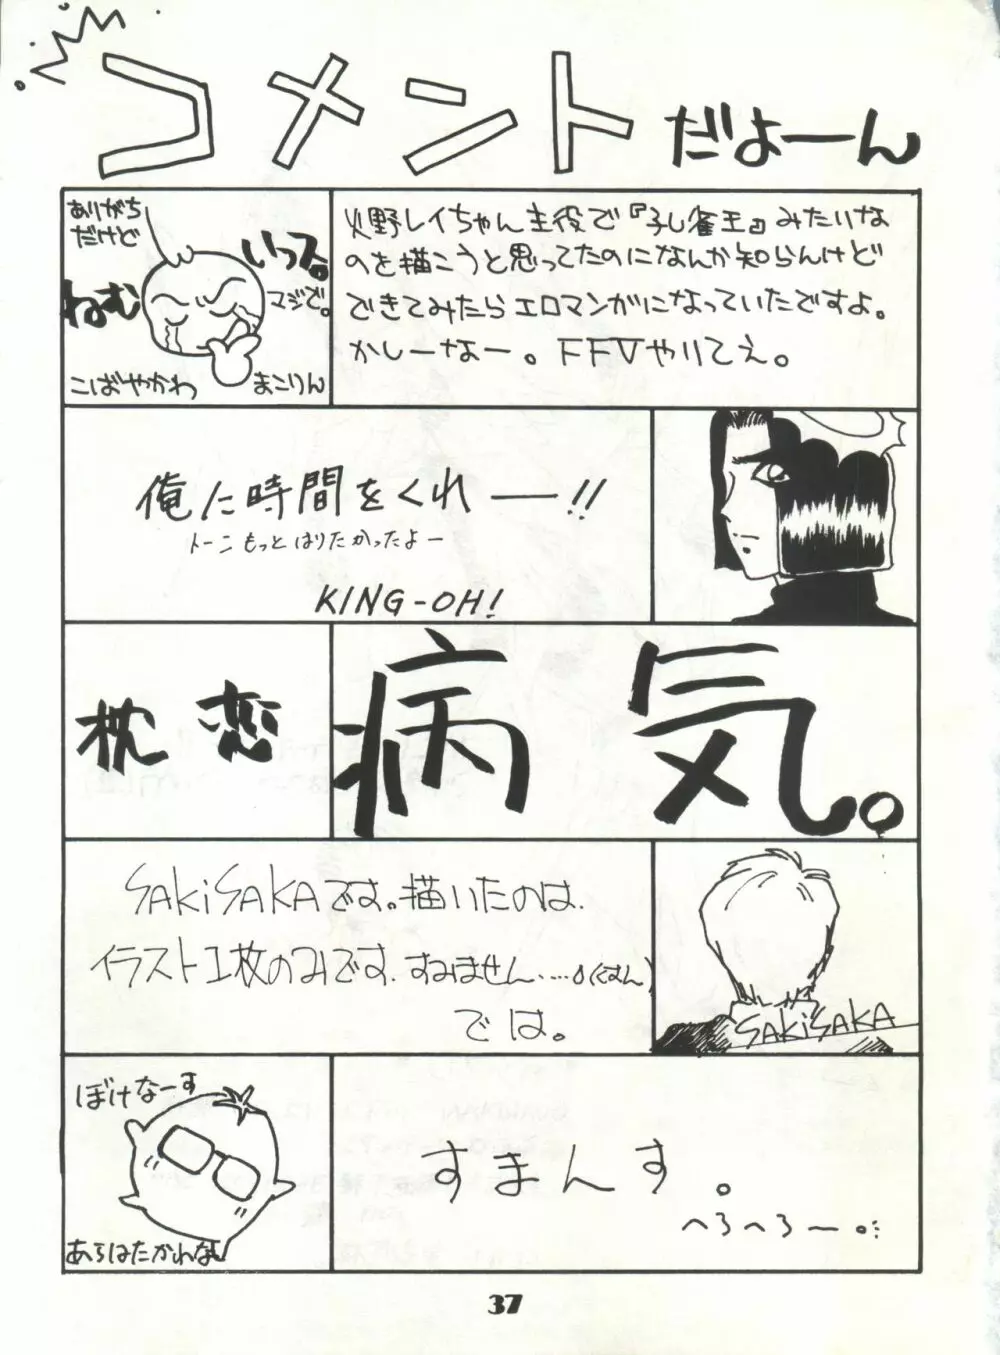 コメントだよーん
ありがち
だけど
いつス。
ねむ
マジで。
こばやかわ まこりん
火野レイちゃん主役で『孔雀王』みたいな
のを描こうと思ってたのになんか知らんけど
できてみたらエロマンガになっていたですよ。
かしーなー。FFⅤやりてえ。
俺に時間をくれ――!!
トーンもっとはりたかったよー
KING-OH!
枕 恋
病気。
SAKiSAKAです。描いたのは
イラスト1枚のみです。すみません……
では。
SAKiSAKA
ぼけなーす
すまんす。
へろへろー
37